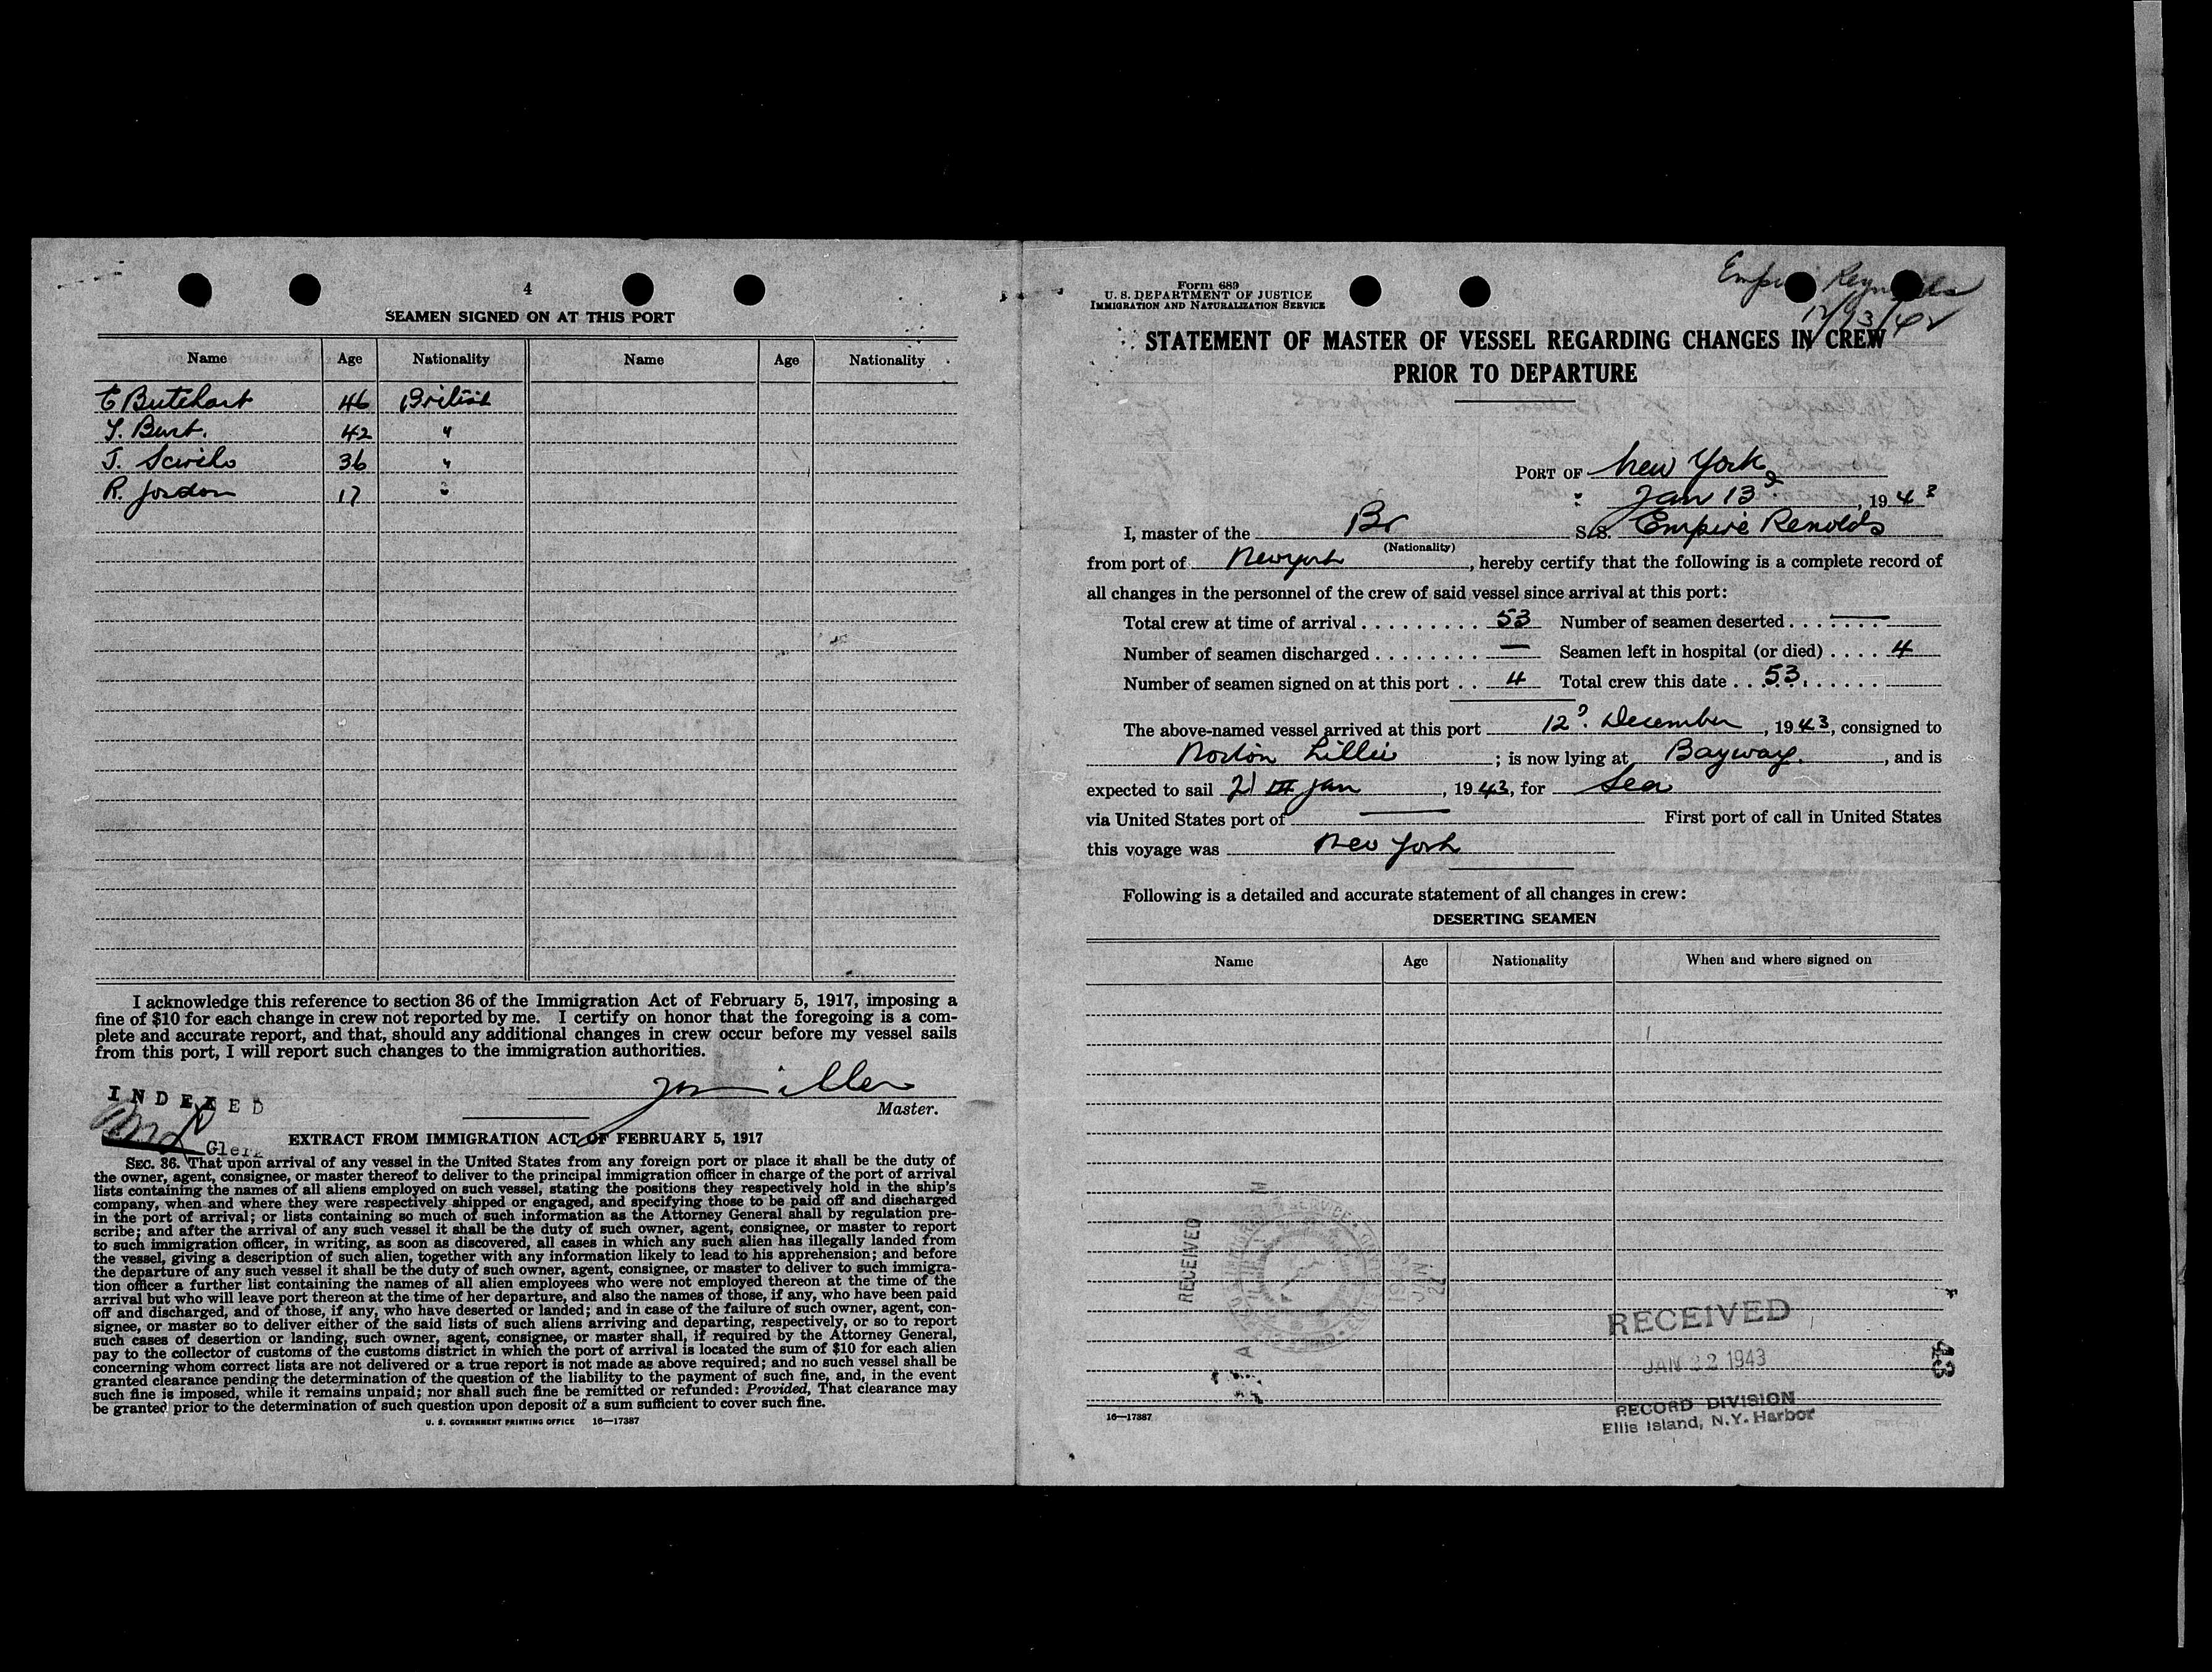 4
SEAMEN SIGNED ON AT THIS PORT
Name Age Nationality Name Age Nationality
E Butchart 46 British
T. Burt. 42 "
J. 36 "
R. Jordon 17 "
I acknowledge this reference to section 36 of the Immigration Act of February 5, 1917, imposing a
fine of $10 for each change in crew not reported by me. I certify on honor that the foregoing is a com-
plete and accurate report, and that, should any additional changes in crew occur before my vessel sails
from this port, I will report such changes to the immigration authorities.
INDEXED
Master.
Clerk
EXTRACT FROM IMMIGRATION ACT OF FEBRUARY 5, 1917
SEC. 36. That upon arrival of any vessel in the United States from any foreign port or place it shall be the duty of
the owner, agent, consignee, or master thereof to deliver to the principal immigration officer in charge of the port of arrival
lists containing the names of all aliens employed on such vessel, stating the positions they respectively hold in the ship's
company, when and where they were respectively shipped or engaged, and specifying those to be paid off and discharged
in the port of arrival; or lists containing so much of such information as the Attorney General shall by regulation pre-
scribe; and after the arrival of any such vessel it shall be the duty of such owner, agent, consignee, or master to report
to such immigration officer, in writing, as soon as discovered, all cases in which any such alien has illegally landed from
the vessel, giving a description of such alien, together with any information likely to lead to his apprehension; and before
the departure of any such vessel it shall be the duty of such owner, agent, consignee, or master to deliver to such immigra-
tion officer a further list containing the names of all alien employees who were not employed thereon at the time of the
arrival but who will leave port thereon at the time of her departure, and also the names of those, if any, who have been paid
off and discharged, and of those, if any, who have deserted or landed; and in case of the failure of such owner, agent, con-
signee, or master so to deliver either of the said lists of such aliens arriving and departing, respectively, or so to report
such cases of desertion or landing, such owner, agent, consignee, or master shall, if required by the Attorney General,
pay to the collector of customs of the customs district in which the port of arrival is located the sum of $10 for each alien
concerning whom correct lists are not delivered or a true report is not made as above required; and no such vessel shall be
granted clearance pending the determination of the question of the liability to the payment of such fine, and, in the event
such fine is imposed, while it remains unpaid; nor shall such fine be remitted or refunded: Provided, That clearance may
be granted prior to the determination of such question upon deposit of a sum sufficient to cover such fine.
U. S. GOVERNMENT PRINTING OFFICE 16—17387
Form 689
U. S. DEPARTMENT OF JUSTICE
IMMIGRATION AND NATURALIZATION SERVICE
Empire Reynolds
12/13/42
STATEMENT OF MASTER OF VESSEL REGARDING CHANGES IN CREW
PRIOR TO DEPARTURE
PORT OF New York
Jan 13, 1943
I, master of the Br S.S. Empire Renolds
(Nationality)
from port of Newyork, hereby certify that the following is a complete record of
all changes in the personnel of the crew of said vessel since arrival at this port:
Total crew at time of arrival 53 Number of seamen deserted —
Number of seamen discharged — Seamen left in hospital (or died) 4
Number of seamen signed on at this port 4 Total crew this date 53
The above-named vessel arrived at this port 12 December, 1943, consigned to
Norton Lillie; is now lying at Bayway., and is
expected to sail 21 Jan, 1943, for Sea
via United States port of — First port of call in United States
this voyage was New York
Following is a detailed and accurate statement of all changes in crew:
DESERTING SEAMEN
Name Age Nationality When and where signed on
RECEIVED
RECEIVED
JAN 22 1943
RECORD DIVISION
Ellis Island, N.Y. Harbor
16—17387